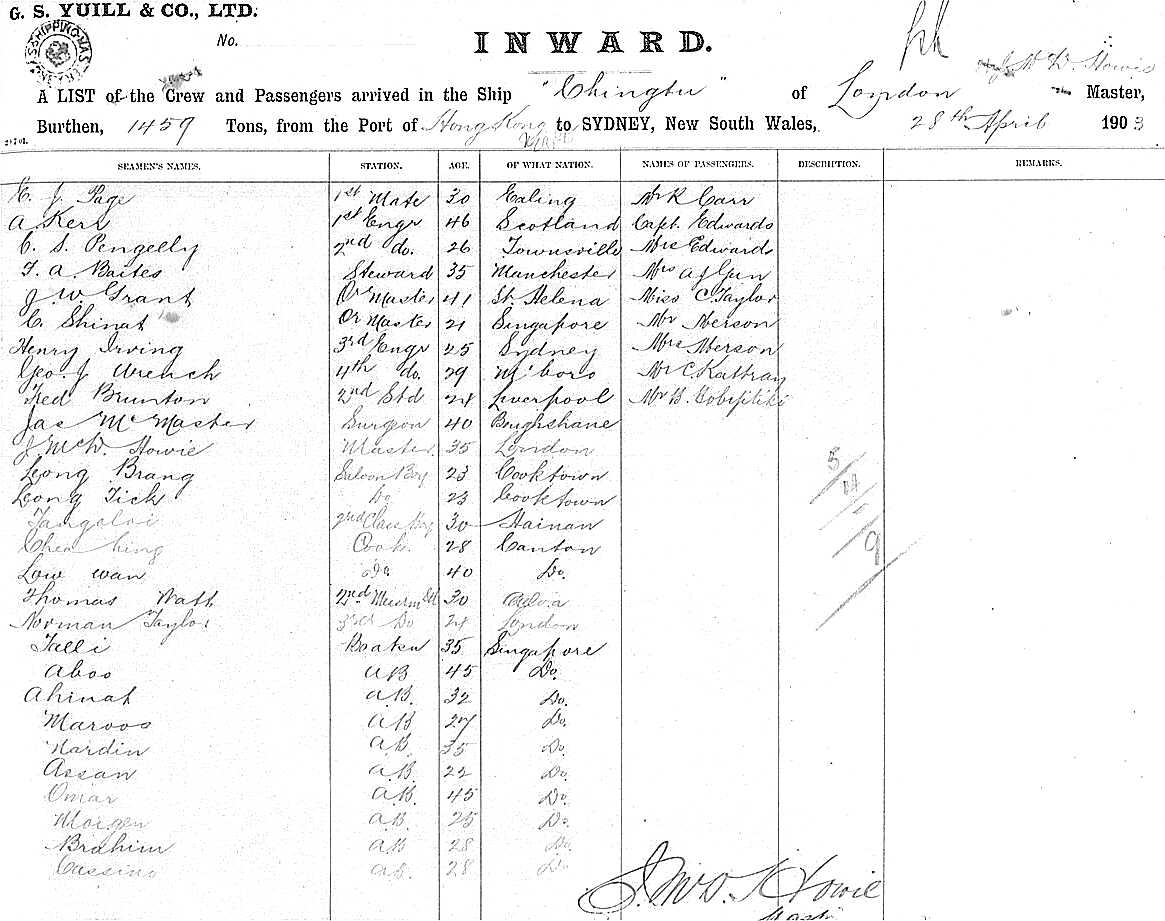 G. S. YUILL & CO., LTD.
SHIPPING MASTER
No.
INWARD.
J McD. Howie
A LIST of the Crew and Passengers arrived in the Ship "Chingtu" of London Master,
Burthen, 1459 Tons, from the Port of Hong Kong to SYDNEY, New South Wales, 28th April 1903
SEAMEN'S NAMES. STATION. AGE. OF WHAT NATION. NAMES OF PASSENGERS. DESCRIPTION. REMARKS.
E. J. Page 1st Mate 30 Ealing Mr R Carr
A Kerr 1st Engr 46 Scotland Capt. Edwards
C. S. Pengelly 2nd do. 26 Townsville Mrs Edwards
F. A. Baites Steward 35 Manchester Mrs A J Gun
J. W. Grant Qr Master 41 St. Helena Miss C. Taylor
C. Shinat Qr Master 21 Singapore Mr Merson
Henry Irving 3rd Engr 25 Sydney Mrs Merson
Geo. J Wrench 4th do. 29 M'boro Mr C Rattray
Fred Brunton 2nd Std 24 Liverpool Mr B.
Jas McMaster Surgeon 40 Boughshane
J. McD. Howie Master 35 London
Leong Brang Saloon Boy 23 Cooktown
Leong Tick Do 23 Cooktown
2nd Class Boy 30 Hainan
Cook 28 Canton
Low wan Do 40 Do.
Thomas Watt 2nd 30
Norman Taylor 3rd Do 24 London
Talli 35 Singapore
Aboo AB 45 Do.
Ahinat A.B. 32 Do.
Maroos AB 27 Do.
Nardin A.B. 35 Do.
Assan A.B. 22 Do.
Omar A.B. 45 Do.
Moigen A.B. 25 Do.
Brahim AB 28 Do.
Cassino A.B. 28 Do
5
9
J. McD. Howie